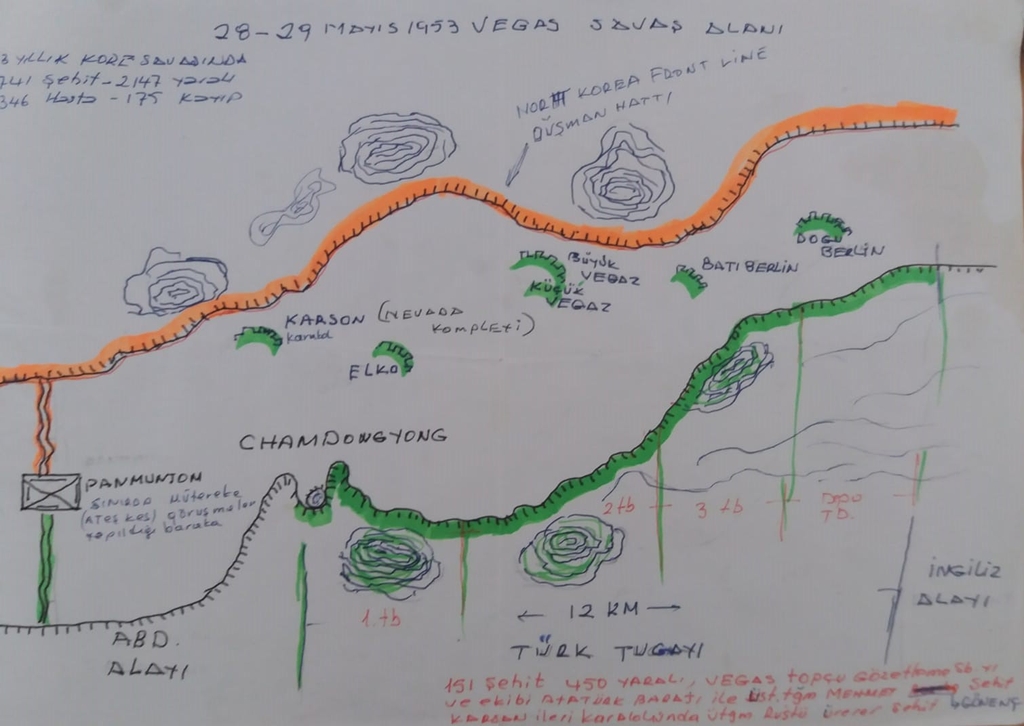 28-29 MAYIS 1953 VEGAS SAVAŞ ALANI
3 YILLIK KORE SAVAŞINDA
741 Şehit - 2147 yaralı
346 Hasta - 175 Kayıp
NORTH KOREA FRONT LINE
DÜŞMAN HATTI
DOĞU
BERLİN
BÜYÜK
VEGAZ
BATI BERLİN
KÜÇÜK
VEGAZ
KARSON (NEVADA
karakol KOMPLEXİ)
ELKO
CHAMDONGYONG
PANMUNJON
SINIRDA Mütereke
(ATEŞ KES) görüşmeler
yapıldığı baraka
2 tb
3 tb
Depo
TD.
İNGİLİZ
ALAYI
1. tb
← 12 KM →
TÜRK TUGAYI
ABD.
ALAYI
151 Şehit 450 YARALI, VEGAS TOPÇU Gözetleme Sb. yı
ve ekibi ATATÜRK BARAJI ile Üst.tğm MEHMET Şehit GÖNENÇ
KARSAN ileri Karakolunda ütğm Rüştü ürerer Şehit